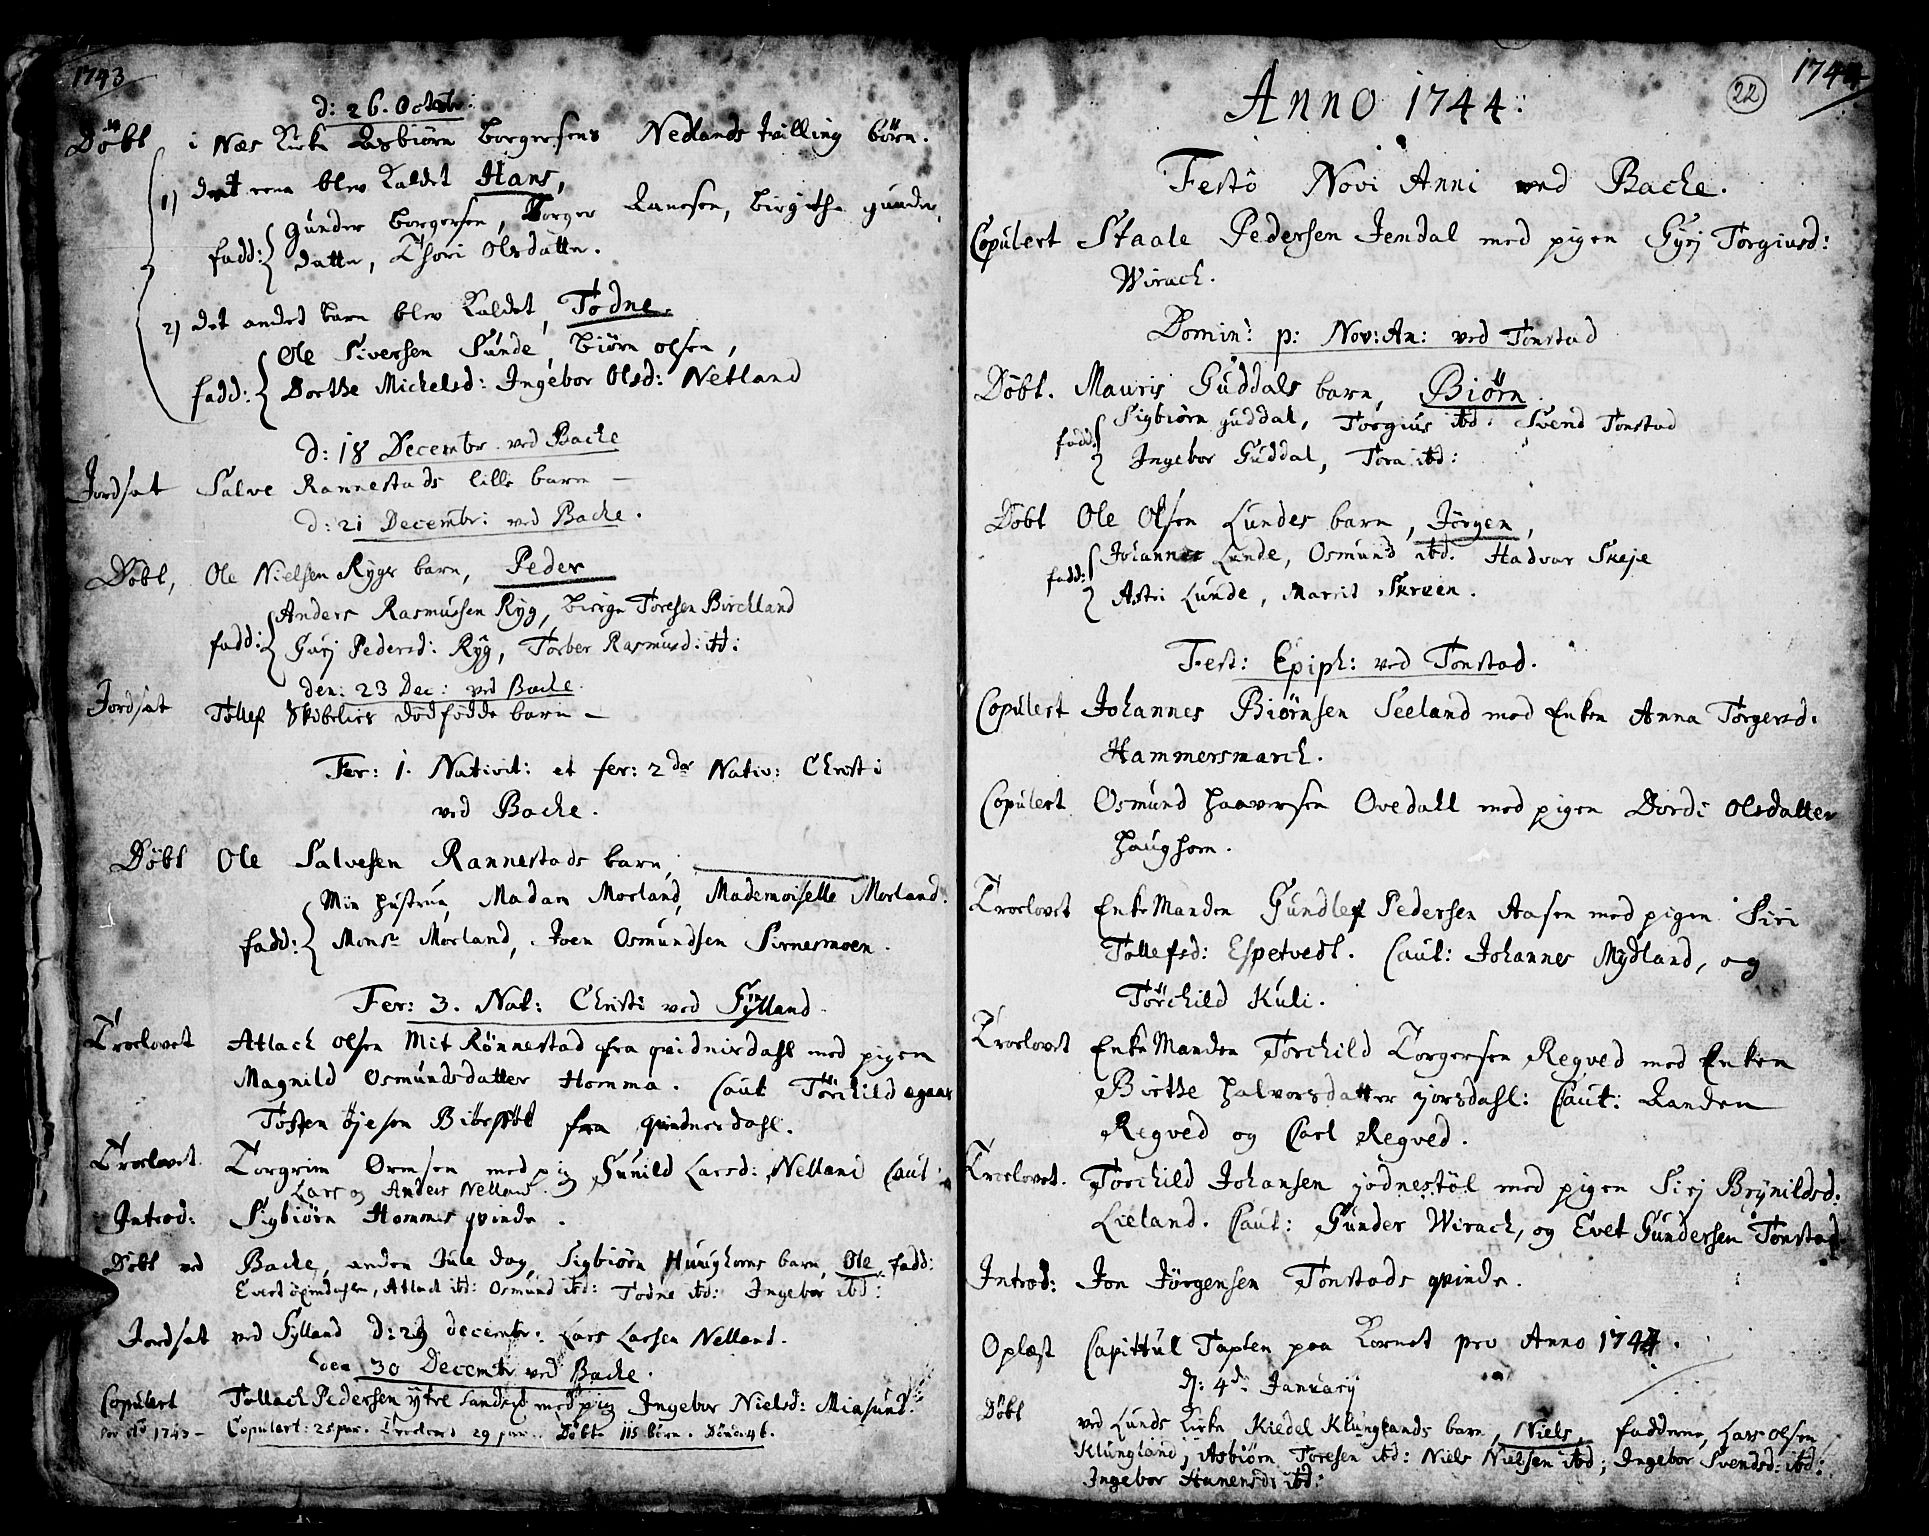 1743
d: 26. Octobr:
Döbt i Nes Kirke Asbiörn Borgersens Nedlands tvilling börn.
1) det eene blev kaldet Hans,
fadd: Gunder Borgersen, Borger Ranesen, Birgithe gunder
datter, Thori Olsdatter.
2) det andet barn blev kaldet, Todne.
Ole Siversen Sunde, Biörn olsen,
fadd: Dorthe Michelsd: Ingebor Olsd: Netland
d: 18 Decembr ved Backe
Jordsat Salve Rannestads lille barn —
d: 21 Decembr: ved Backe.
Döbt, Ole Nielsen Rygs barn, Peder
Anders Rasmussen Ryg, Birge Toresen Birchland
fadd: Gurj Pedersd: Ryg, Torber Rasmusd: ibd:
den: 23 Dec: ved Backe
Jordsat Tollef Skibelies dödfödde barn —
Fer: 1. Nativit: et fer: 2dæ Nativ: Christi
ved Backe.
Döbt Ole Salvesen Rannestads barn,
Min hustrue, Madam Morland, Mademoiselle Morland.
fadd: Monsr Morland, Joen Osmundsen Sirnesmoen.
Fer: 3. Nat: Christi ved Fylland.
Troelovet Atlach olsen Mit Rönnestad fra qvidnisdahl med pigen
Magnild Osmundsdatter Homma. Caut Törchild
Tosten öjesen fra qvidnesdahl.
Troelovet Torgrim Ormsen med pig Gunild Larsd: Nelland Caut:
Lars og Anders Nelland.
Introd: Sigbiörn Hommes qvinde.
Döbt ved Backe, anden Jule dag, Sigbiörn Hunghoms barn, Ole, fadd:
Evert, Atlach ibd: Osmund ibd: Todne ibd: Ingebor ibd:
Jordsat ved Fylland d: 29 decembr: Lars Larsen Nelland.
den 30 Decembr ved Backe.
Copulert Tollach Pedersen ytre Landrist med pig Ingebor Nielsd: Miasund.
1743 – Copulert: 25 par. Troelovet 29 par. Döbte 115 börn. Döde 46.
1744
22
Anno 1744:
Festo Novi Anni ved Backe.
Copulert Staale Pedersen Jendal med pigen Gyrj Torgiusd:
Wirach.
Domin: p: Nov: An: ved Tonstad
Döbt. Mauris Guddals barn, Biörn.
fadd: Sigbiörn guddal, Torgius ibd: Svend Tonstad
Ingebor Guddal, Tora ibd:
Döbt Ole Olsen Lundes barn, Jörgen,
fadd: Johannes Lunde, Osmund ibd: Hadvar Skeje
Astri Lunde, Marrit Skreen.
Fest: Epiph: ved Tonstad.
Copulert Johannes Biörnsen Seeland med Enken Anna Torgersd:
Hammersmarch.
Copulert Osmund Haaversen Ovedall med pigen Dordi Olsdatter
Haughom.
Troelovet Enke Manden Gundlef Pedersen Aasen med pigen Siri
Tollefsd: Espetvedt. Caut: Johannes Mydland, og
Törchild Kuli.
Troelovet Enke Manden Torchild Torgersen Regved med Enken
Birthe Halvorsdatter jorsdahl: Caut: Randen
Regved og Carl Regved.
Troelovet. Torchild Johansen jödnestöl med pigen Sirj Brynildsd:
Lieland. Caut: Gunder Wirach, og Evet Gundersen Tonstad
Introd: Jon Jörgensen Tonstads qvinde.
Oplæst Capittul Taxten paa Kornet pro Anno 1744.
d: 4de January
Döbt ved Lunds Kirke, Kiedel Klunglands barn, Niels, fadderne, Lars olsen
Klungland, Asbiörn Toresen ibd: Niels Nielsen ibd; Ingebor Svendsd: ibd:
Ingebor Hanensd: ibd: